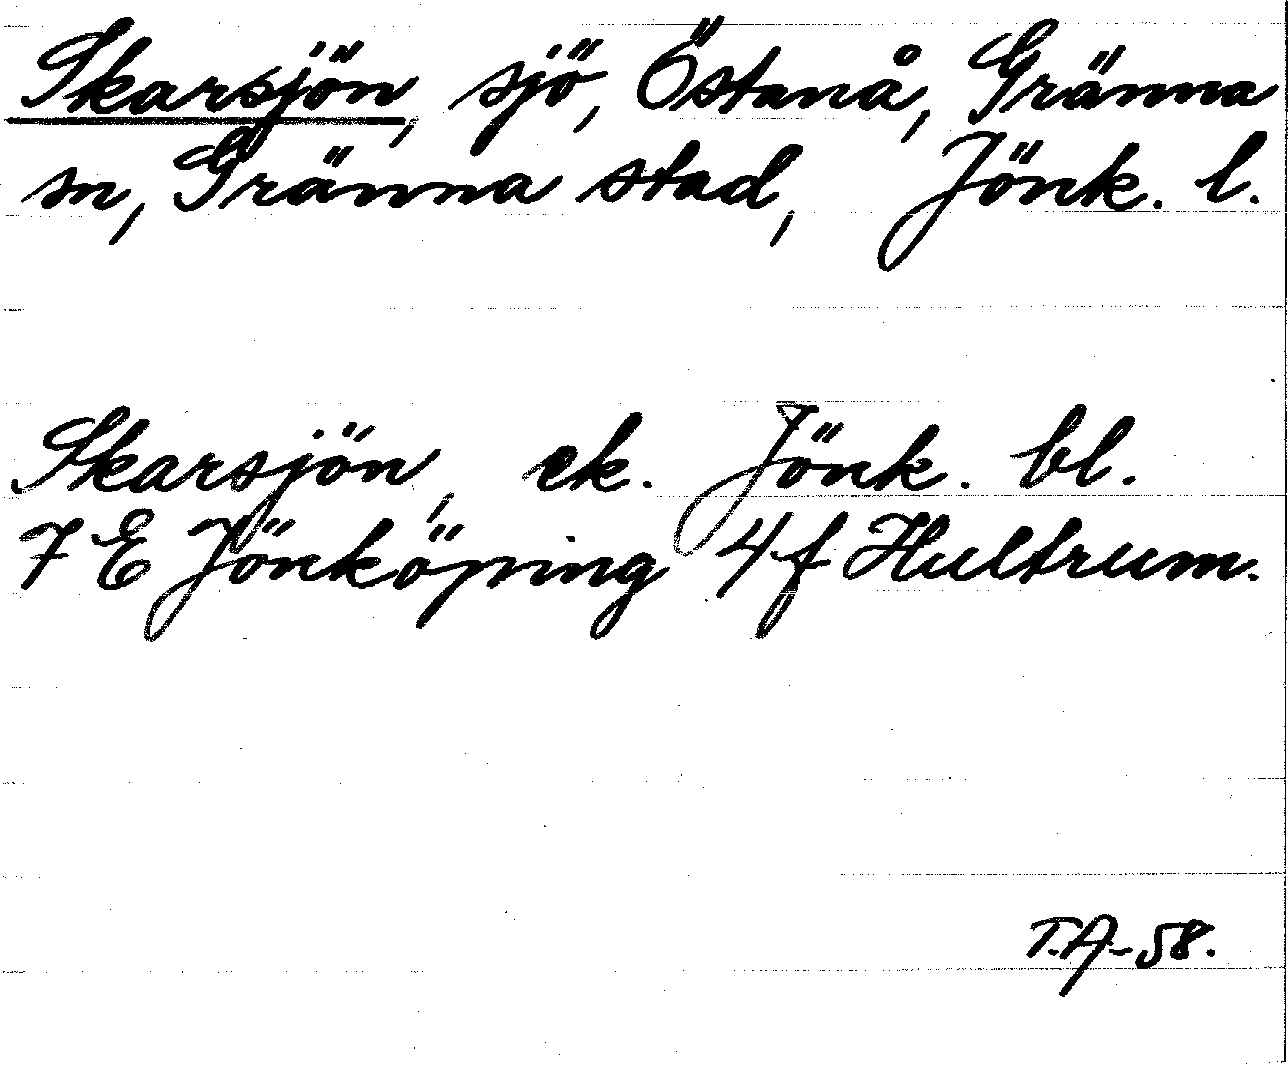 Skarsjön, sjö, Östanå, Gränna
sn, Gränna stad, Jönk. l.
Skarsjön, ek. Jönk. bl.
7 E Jönköping 4 f Hultrum.
T.A-58.